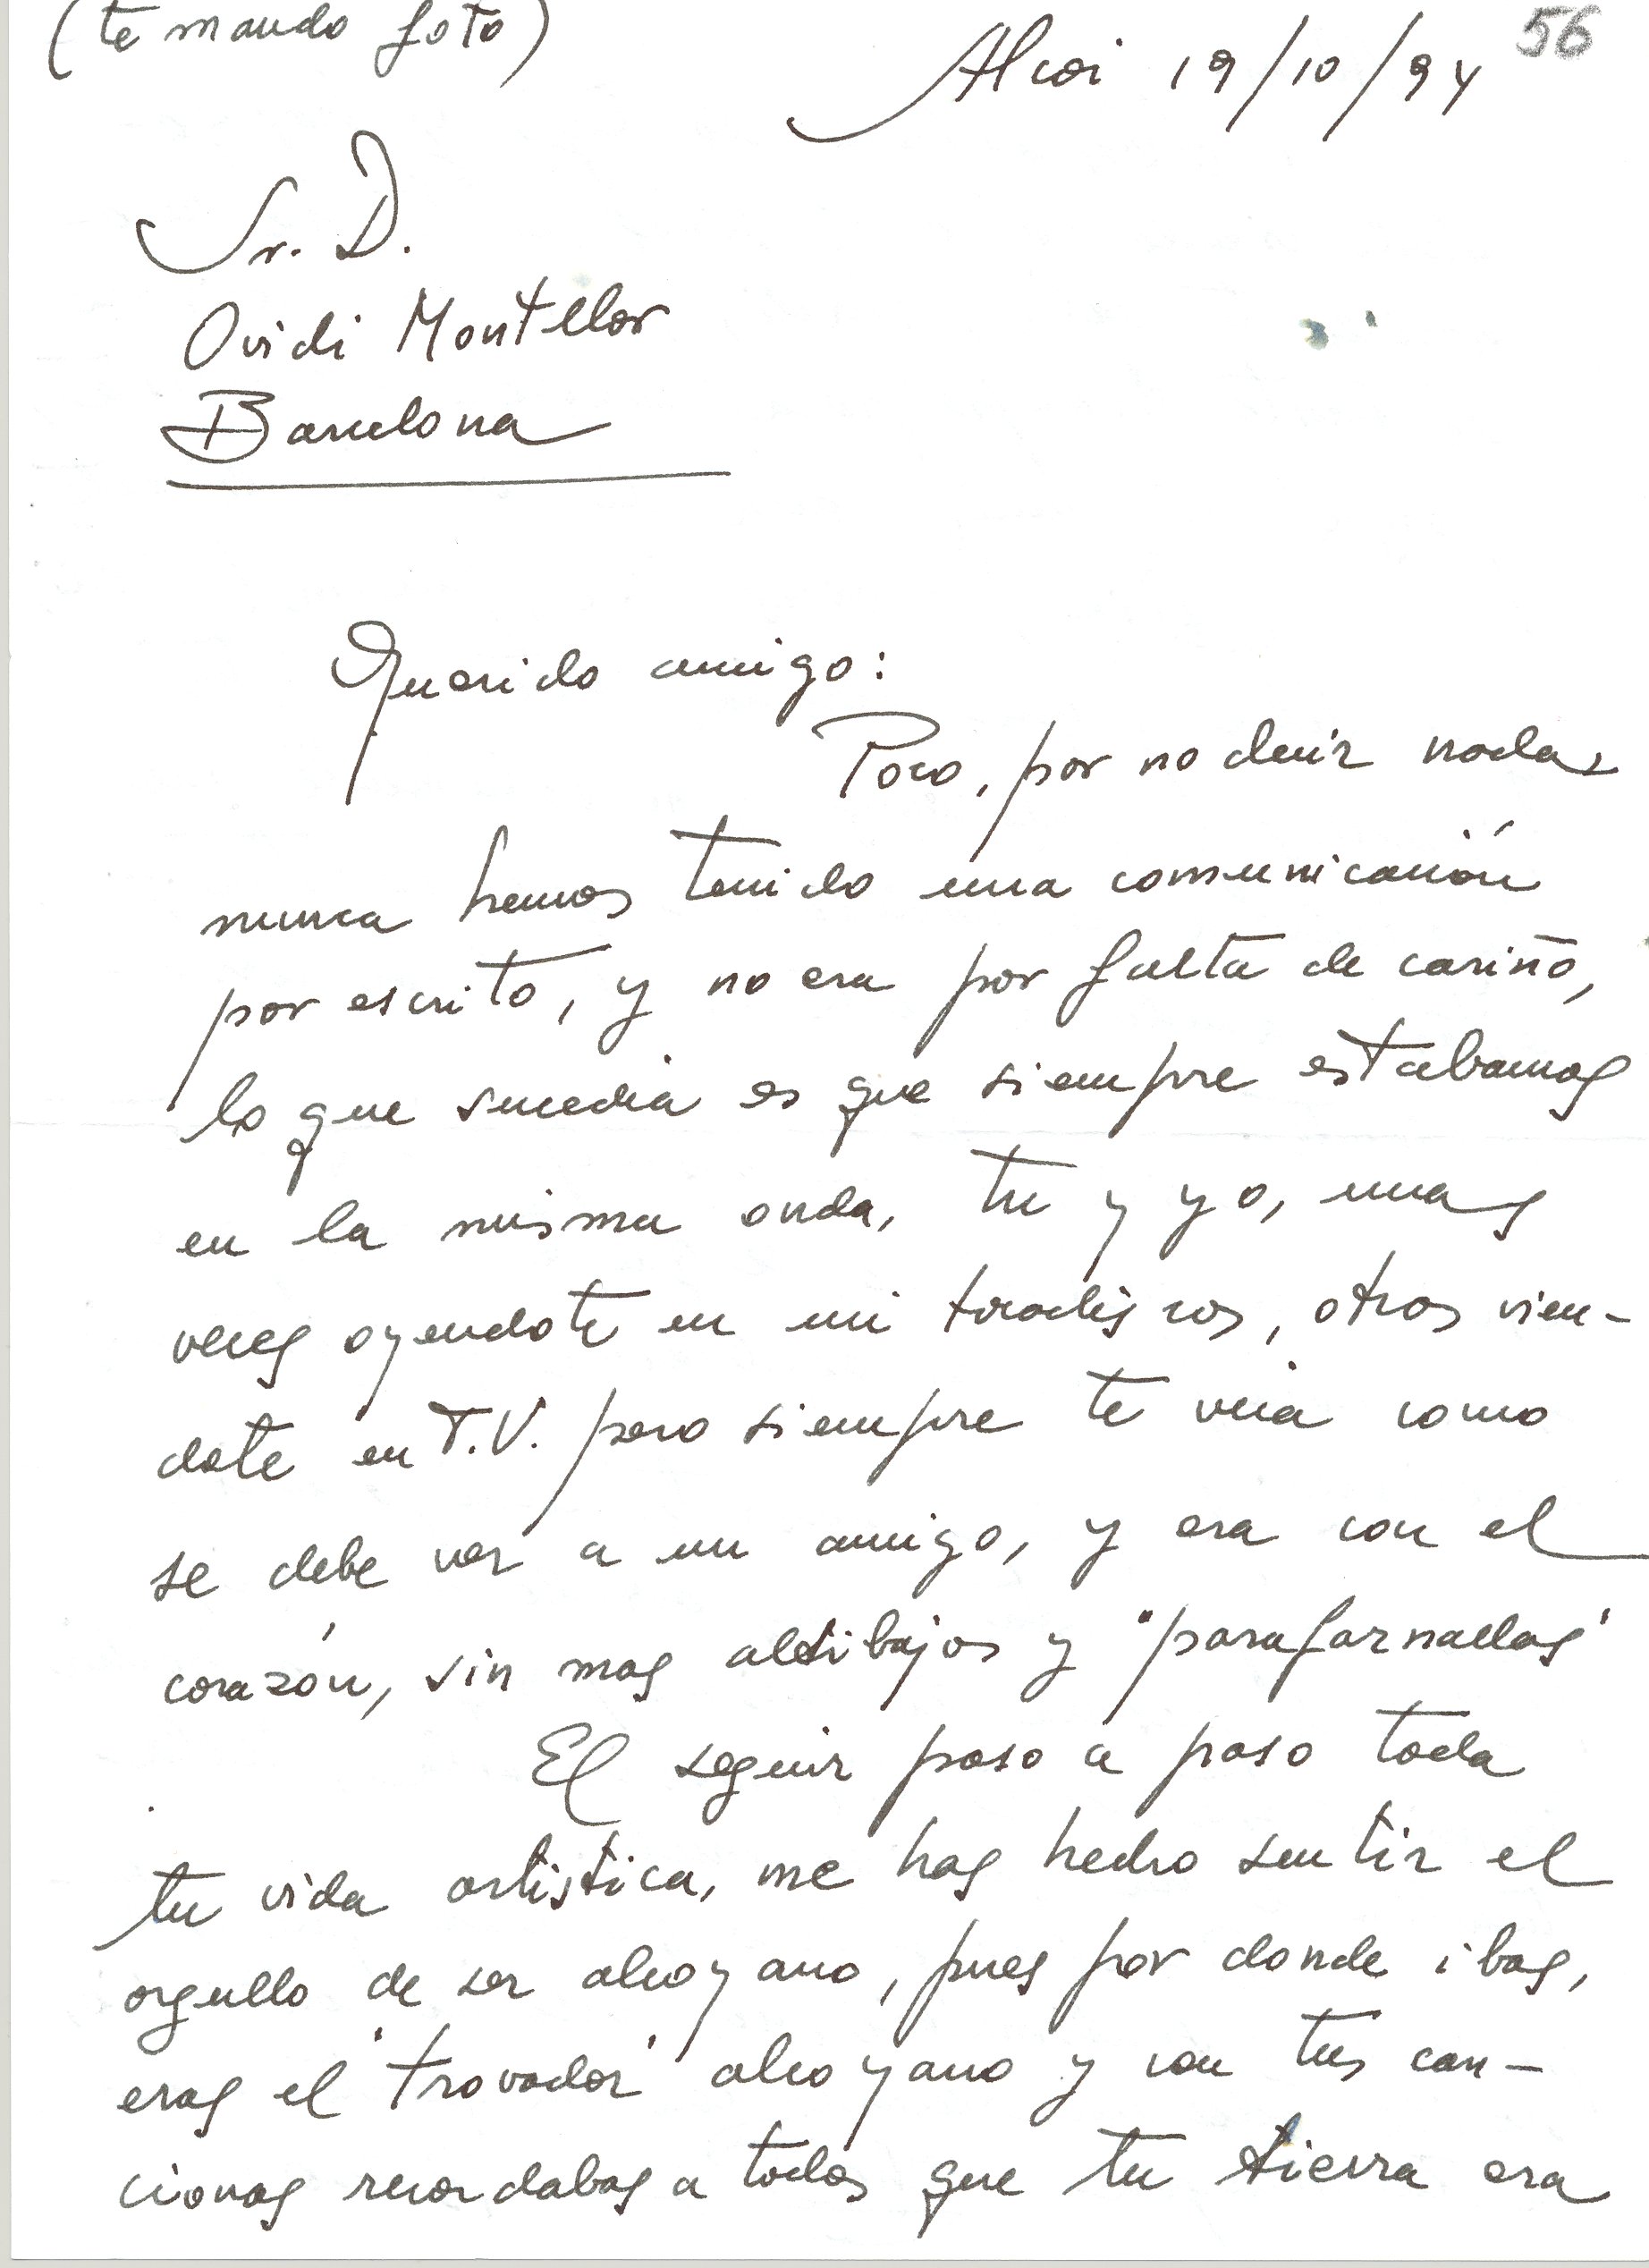 (te mando foto)
56
Alcoi 19/10/94
Sr. D.
Ovidi Montllor
Barcelona
Querido amigo:
Poco, por no decir nada,
nunca hemos tenido una comunicación
por escrito, y no era por falta de cariño,
lo que sucedia es que siempre estabamos
en la misma onda, tu y yo, unas
veces oyendote en mi tocadiscos, otras vien-
dote en T.V. pero siempre te veia como
se debe ver a un amigo, y era con el
corazón, sin mas altibajos y "parafarnallas"
El seguir paso a paso toda
tu vida artistica, me has hecho sentir el
orgullo de ser alcoyano, pues por donde ibas,
eras el "trovador" alcoyano y con tus can-
ciones recordabas a todos que tu tierra era